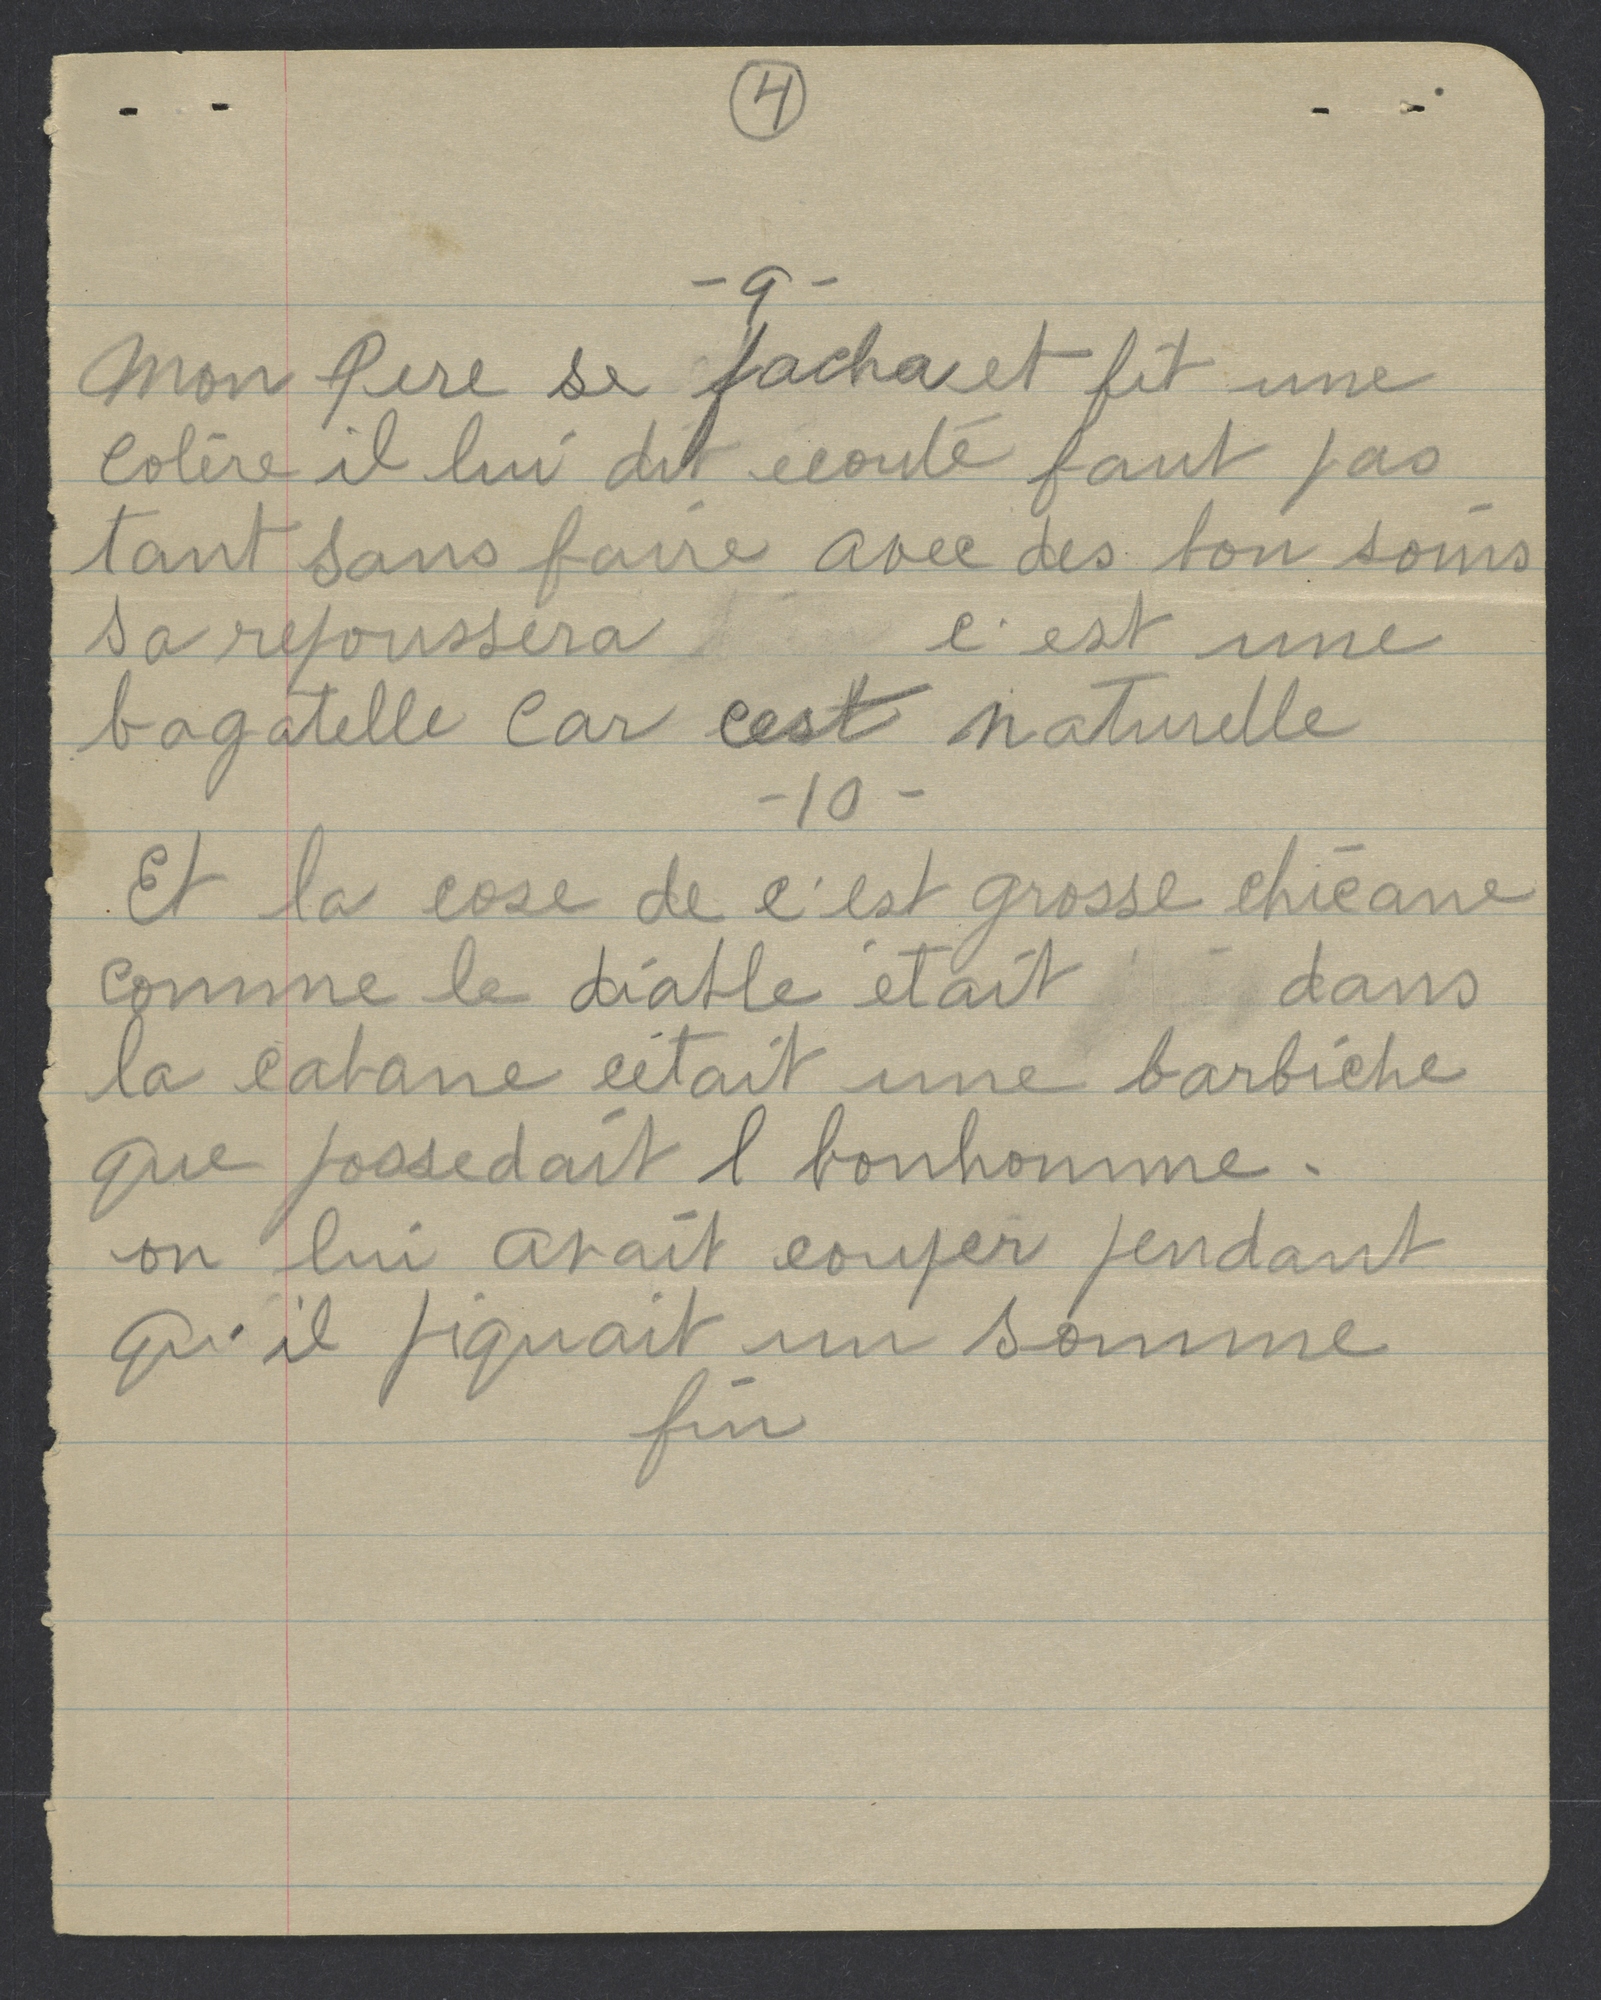 4
-9-
Mon Pere se facha et fit une
colère il lui dit écouté faut pas
tant sans faire avec des bon soins
sa repoussera c'est une
bagatelle Car cest naturelle
-10-
Et la cose de c'est grosse chicane
comme le diable était dans
la cabane cétait une barbiche
que possedait l bonhomme.
on lui avait couper pendant
qu'il piquait un somme
fin